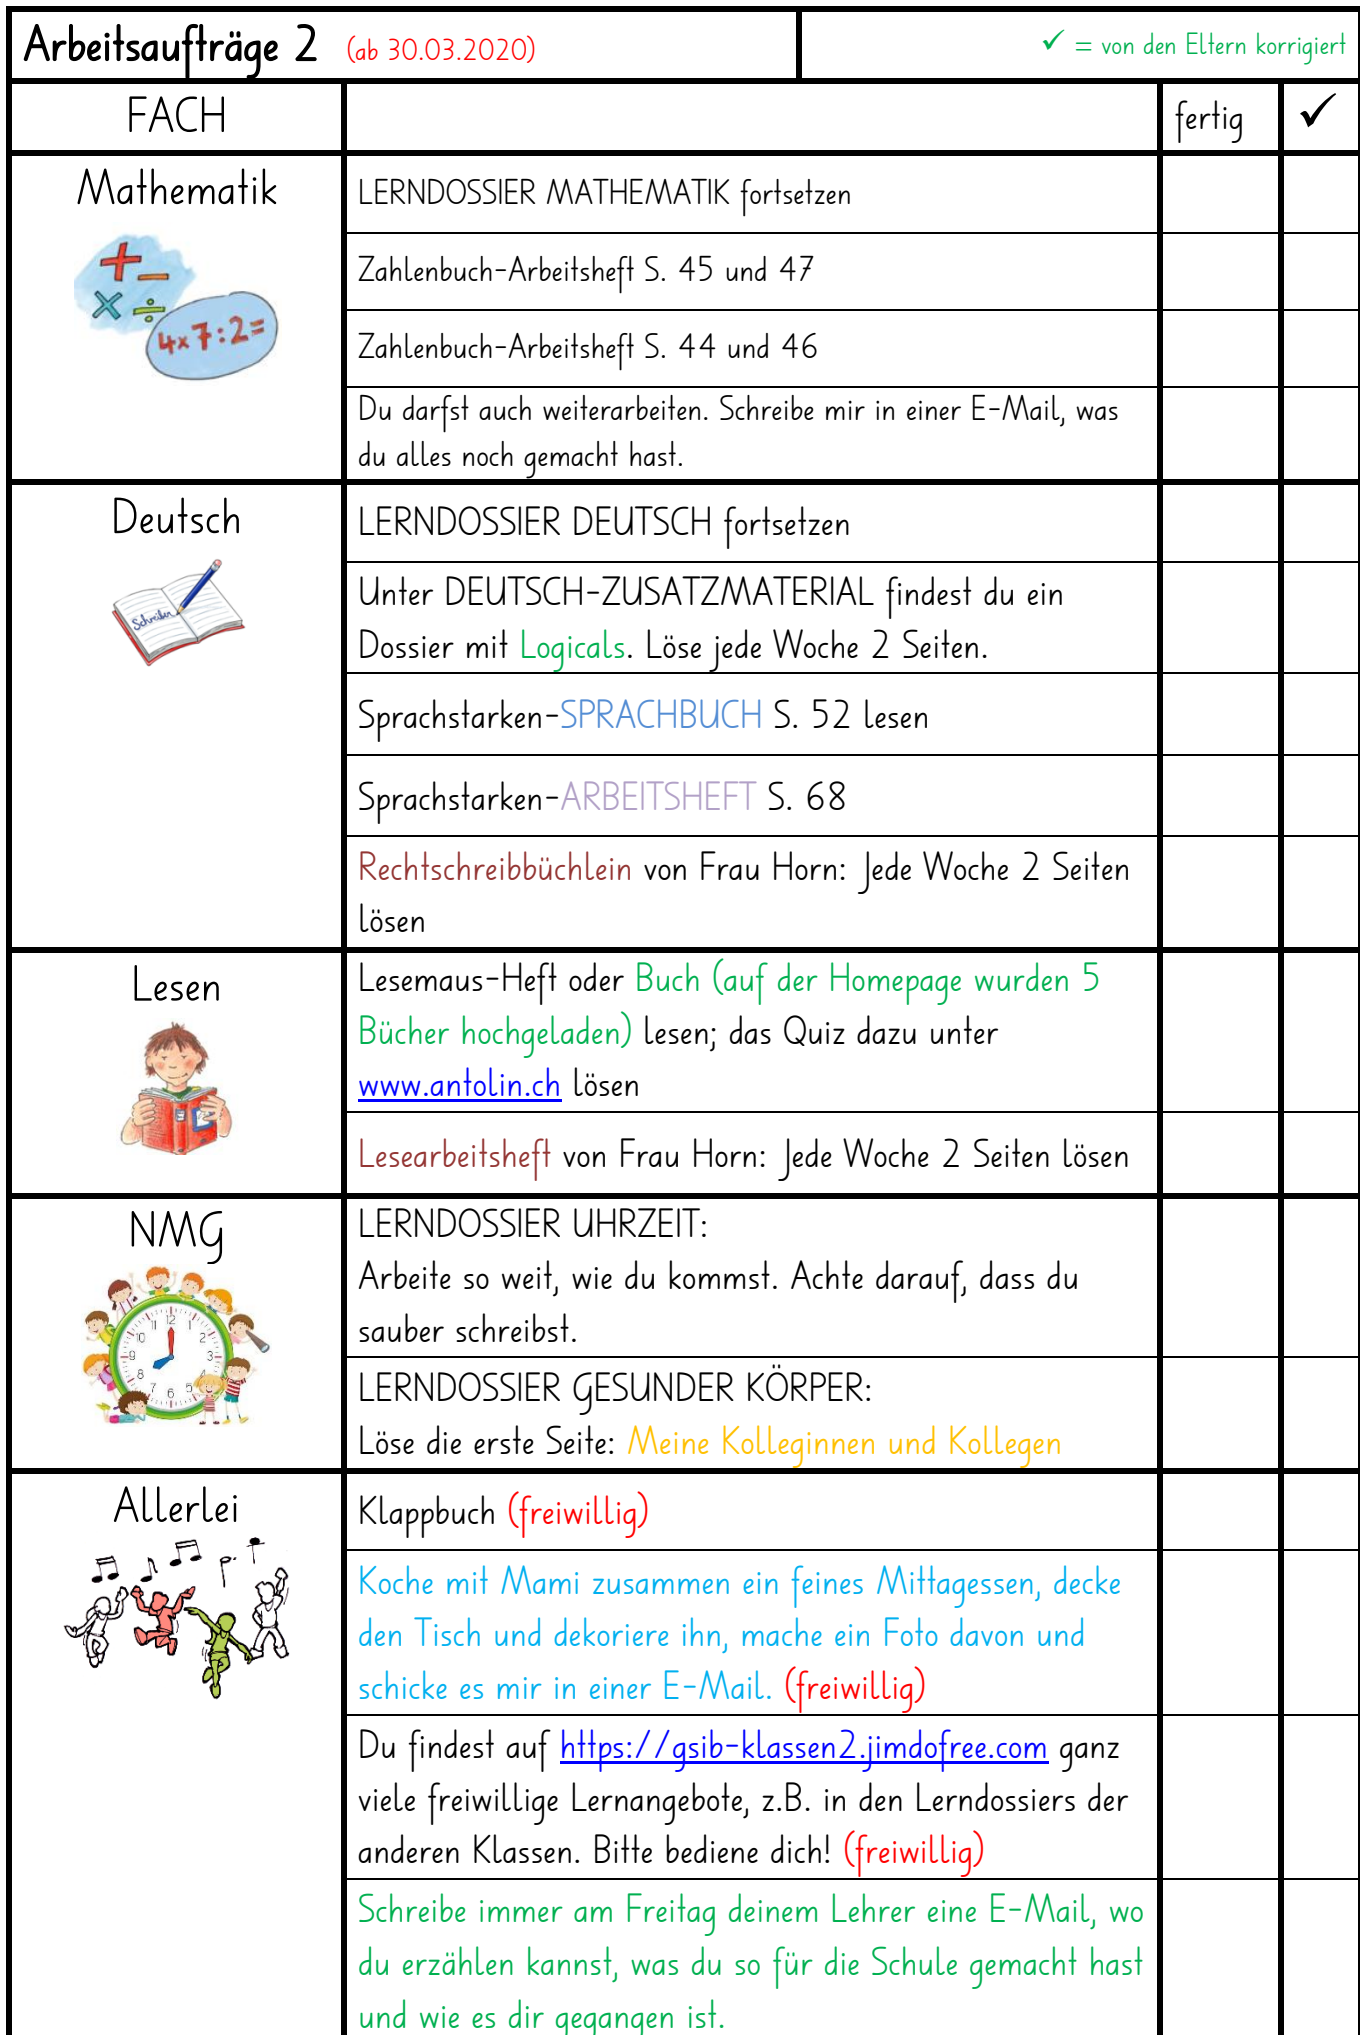 Arbeitsaufträge 2 (ab 30.03.2020)
✓ = von den Eltern korrigiert
FACH
fertig
✓
Mathematik
+ −
× ÷
4x7:2=
LERNDOSSIER MATHEMATIK fortsetzen
Zahlenbuch-Arbeitsheft S. 45 und 47
Zahlenbuch-Arbeitsheft S. 44 und 46
Du darfst auch weiterarbeiten. Schreibe mir in einer E-Mail, was
du alles noch gemacht hast.
Deutsch
Schreiben
LERNDOSSIER DEUTSCH fortsetzen
Unter DEUTSCH-ZUSATZMATERIAL findest du ein
Dossier mit Logicals. Löse jede Woche 2 Seiten.
Sprachstarken-SPRACHBUCH S. 52 lesen
Sprachstarken-ARBEITSHEFT S. 68
Rechtschreibbüchlein von Frau Horn: Jede Woche 2 Seiten
lösen
Lesen
Lesemaus-Heft oder Buch (auf der Homepage wurden 5
Bücher hochgeladen) lesen; das Quiz dazu unter
www.antolin.ch lösen
Lesearbeitsheft von Frau Horn: Jede Woche 2 Seiten lösen
NMG
12 1 2 3 4 5 6 7 8 9 10 11
LERNDOSSIER UHRZEIT:
Arbeite so weit, wie du kommst. Achte darauf, dass du
sauber schreibst.
LERNDOSSIER GESUNDER KÖRPER:
Löse die erste Seite: Meine Kolleginnen und Kollegen
Allerlei
Klappbuch (freiwillig)
Koche mit Mami zusammen ein feines Mittagessen, decke
den Tisch und dekoriere ihn, mache ein Foto davon und
schicke es mir in einer E-Mail. (freiwillig)
Du findest auf https://gsib-klassen2.jimdofree.com ganz
viele freiwillige Lernangebote, z.B. in den Lerndossiers der
anderen Klassen. Bitte bediene dich! (freiwillig)
Schreibe immer am Freitag deinem Lehrer eine E-Mail, wo
du erzählen kannst, was du so für die Schule gemacht hast
und wie es dir gegangen ist.